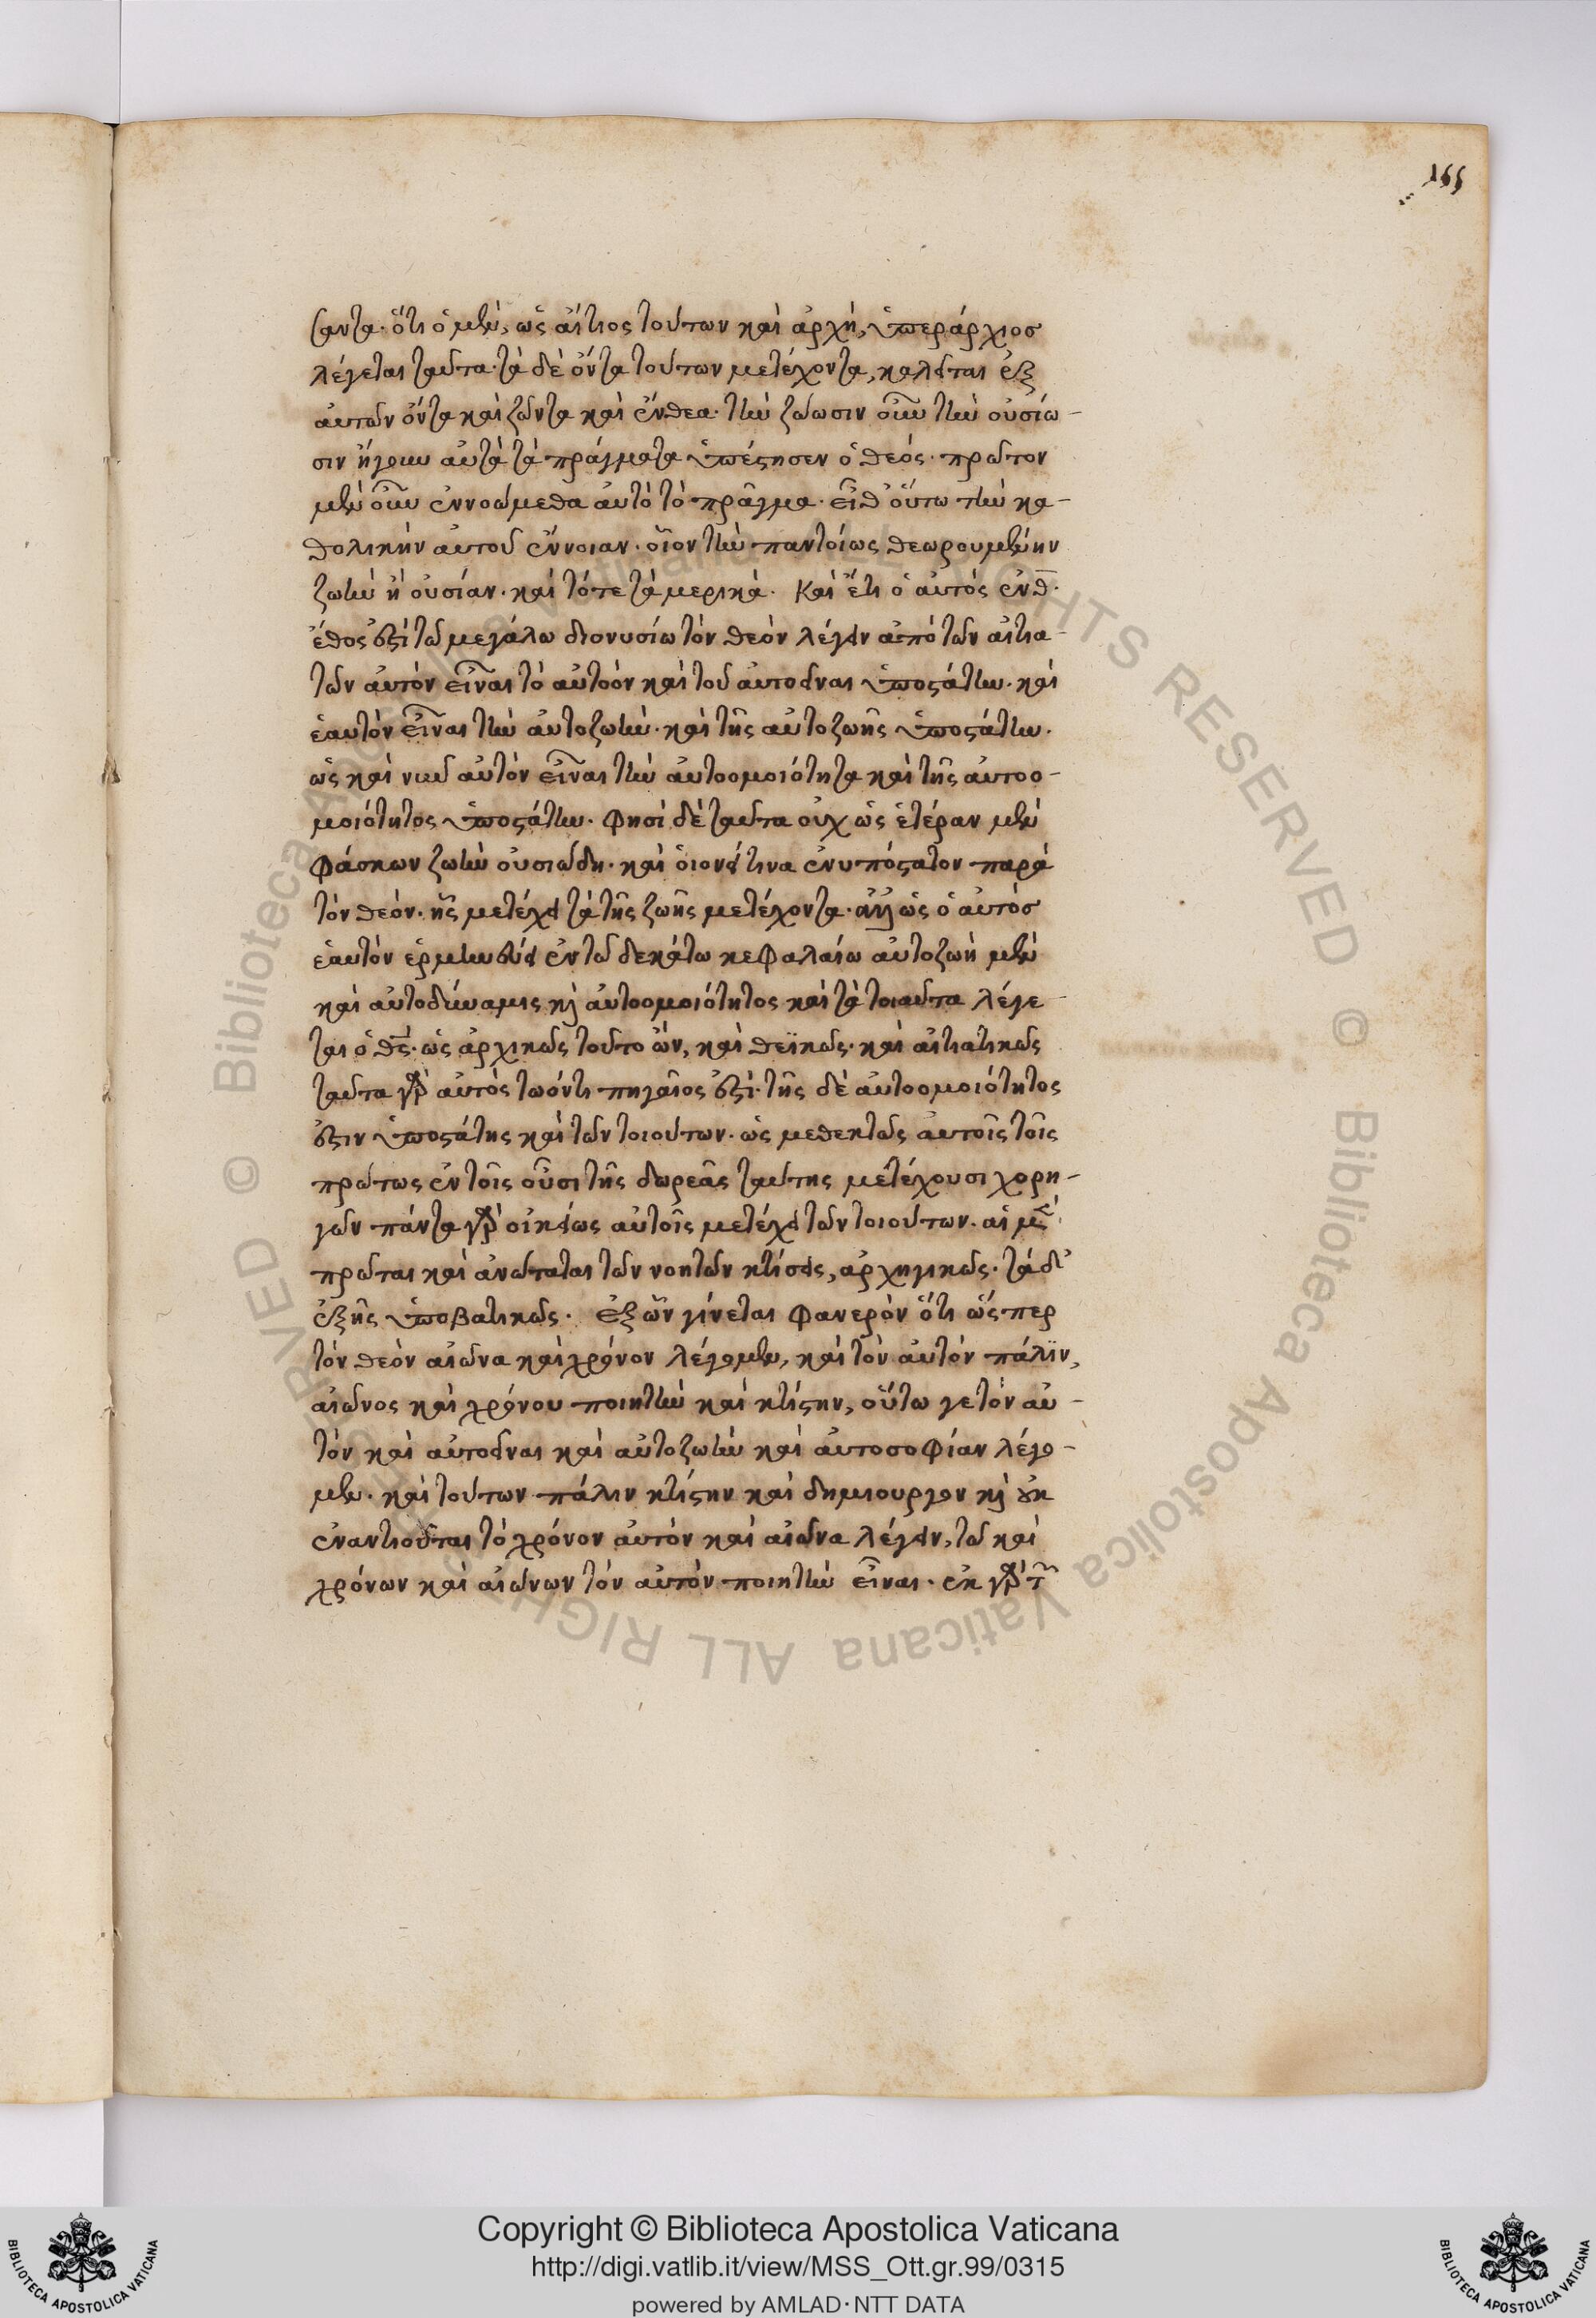 155
σαντα· ὅτι ὁ μὲν, ὡς αἴτιος τούτων καὶ ἀρχὴ, ὑπεράρχιος
λέγεται ταῦτα· τὰ δὲ ὄντα τούτων μετέχοντα, καλεῖται ἐξ
αὐτῶν ὄντα καὶ ζῶντα καὶ ἔνθεα· τὴν ζώωσιν οὖν τὴν οὐσίω-
σιν ἤγουν αὐτὰ τὰ πράγματα ὑπέστησεν ὁ θεός· πρῶτον
μὲν οὖν ἐννοώμεθα αὐτὸ τὸ πρᾶγμα· εἶθ' οὕτω τὴν κα-
θολικὴν αὐτοῦ ἔννοιαν· οἷον τὴν παντοίως θεωρουμένην
ζωὴν ἢ οὐσίαν· καὶ τότε τὰ μερικά· Καὶ ἔτι ὁ αὐτὸς ἐνθ·
ἔθος ἐστὶ τῶ μεγάλω διονυσίω τὸν θεὸν λέγειν ἀπὸ τῶν αἰτια-
τῶν αὐτὸν εἶναι τὸ αὐτοὸν καὶ τοῦ αὐτοεῖναι ὑποστάτην· καὶ
ἑαυτὸν εἶναι τὴν αὐτοζωὴν· καὶ τῆς αὐτοζωῆς ὑποστάτην·
ὡς καὶ νῦν αὐτὸν εἶναι τὴν αὐτοομοιότητα καὶ τῆς αὐτοο-
μοιότητος ὑποστάτην· φησὶ δὲ ταῦτα οὐχ ὡς ἑτέραν μὲν
φάσκων ζωὴν οὐσιώδη· καὶ οἱονεί τινα ἐνυπόστατον παρὰ
τὸν θεόν· ἧς μετέχει τὰ τῆς ζωῆς μετέχοντα· ἀλλ' ὡς ὁ αὐτὸς
ἑαυτὸν ἑρμηνεύει ἐν τῶ δεκάτω κεφαλαίω αὐτοζωὴ μὲν
καὶ αὐτοδύναμις καὶ αὐτοομοιότητος καὶ τὰ τοιαῦτα λέγε-
ται ὁ θς· ὡς ἀρχικῶς τοῦτο ὢν, καὶ θεϊκῶς· καὶ αἰτιατικῶς
ταῦτα γὰρ αὐτὸς τωόντι πηγαῖος ἐστὶ· τῆς δὲ αὐτοομοιότητος
ἐστιν ὑποστάτης καὶ τῶν τοιούτων· ὡς μεθεκτῶς αὐτοῖς τοῖς
πρώτως ἐν τοῖς οὖσι τῆς δωρεᾶς ταύτης μετέχουσι χορη-
γῶν πάντα γὰρ οἰκείως αὐτοῖς μετέχει τῶν τοιούτων· αἱ μὲν
πρῶται καὶ ἀνώταται τῶν νοητῶν κτίσεις, ἀρχηγικῶς· τὰ δ'
ἑξῆς ὑποβατικῶς· ἐξ ὧν γίνεται φανερὸν ὅτι ὥσπερ
τὸν θεὸν αἰῶνα καὶ χρόνον λέγομεν, καὶ τὸν αὐτὸν πάλιν,
αἰῶνος καὶ χρόνου ποιητὴν καὶ κτίστην, οὕτω γε τὸν αὐ-
τὸν καὶ αὐτοεῖναι καὶ αὐτοζωὴν καὶ αὐτοσοφίαν λέγο-
μεν· καὶ τούτων πάλιν κτίστην καὶ δημιουργὸν καὶ οὐκ
ἐναντιοῦται τὸ χρόνον αὐτὸν καὶ αἰῶνα λέγειν, τῶ καὶ
χρόνων καὶ αἰώνων τὸν αὐτὸν ποιητὴν εἶναι· ἐκ γὰρ τῶν
Copyright © Biblioteca Apostolica Vaticana
http://digi.vatlib.it/view/MSS_Ott.gr.99/0315
powered by AMLAD·NTT DATA
BIBLIOTECA APOSTOLICA VATICANA
BIBLIOTECA APOSTOLICA VATICANA
© Biblioteca Apostolica Vaticana ALL RIGHTS RESERVED © Biblioteca Apostolica Vaticana ALL RIGHTS RESERVED